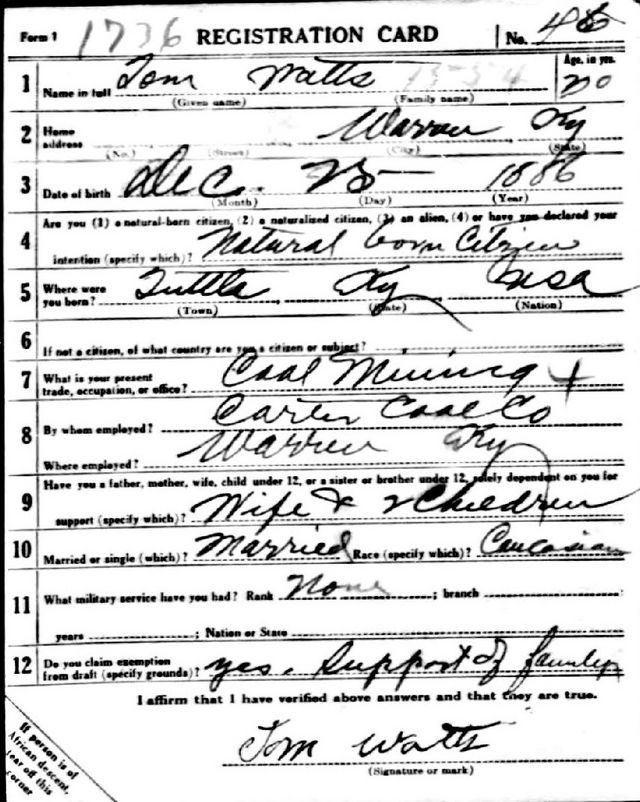 Form 1 1736 REGISTRATION CARD No. 46
1 Name in full Tom Watts Age, in yrs.
(Given name) (Family name) 30
2 Home address Warren Ky
(No.) (Street) (City) (State)
3 Date of birth Dec. 25 1886
(Month) (Day) (Year)
4 Are you (1) a natural-born citizen, (2) a naturalized citizen, (3) an alien, (4) or have you declared your
intention (specify which)? Natural born Citizen
5 Where were you born? Tuttle Ky USA
(Town) (State) (Nation)
6 If not a citizen, of what country are you a citizen or subject?
7 What is your present trade, occupation, or office? Coal Mining
8 By whom employed? Carter Coal Co
Where employed? Warren Ky
9 Have you a father, mother, wife, child under 12, or a sister or brother under 12, solely dependent on you for
support (specify which)? Wife & 2 Children
10 Married or single (which)? Married Race (specify which)? Caucasian
11 What military service have you had? Rank None ; branch
years ; Nation or State
12 Do you claim exemption from draft (specify grounds)? yes. Support of family
I affirm that I have verified above answers and that they are true.
Tom Watts
(Signature or mark)
If person is of
African descent,
tear off this
corner